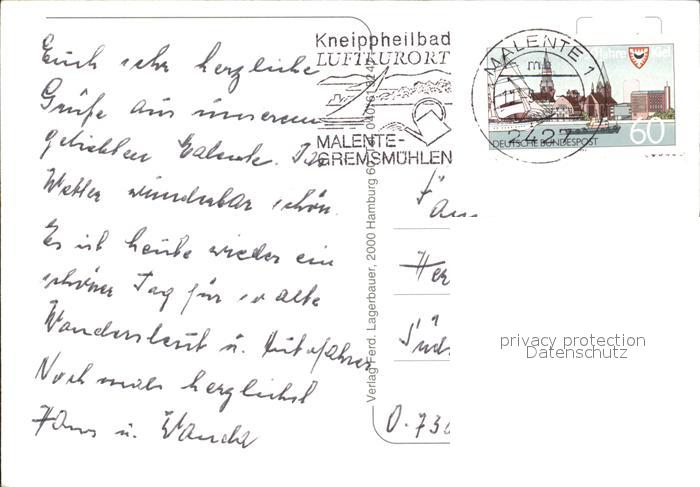 Euch sehr herzliche
Grüße aus unserem
geliebten Malente. Das
Wetter wunderbar schön.
Es ist heute wieder ein
schöner Tag für so alte
Wandersleut u. Autofahrer
Noch mals herzlichst
Hans u. Wanda
Kneippheilbad
LUFTKURORT
MALENTE-
GREMSMÜHLEN
MALENTE 1
2427
DEUTSCHE BUNDESPOST
60
Verlag Ferd. Lagerbauer, 2000 Hamburg
O.-730
privacy protection
Datenschutz